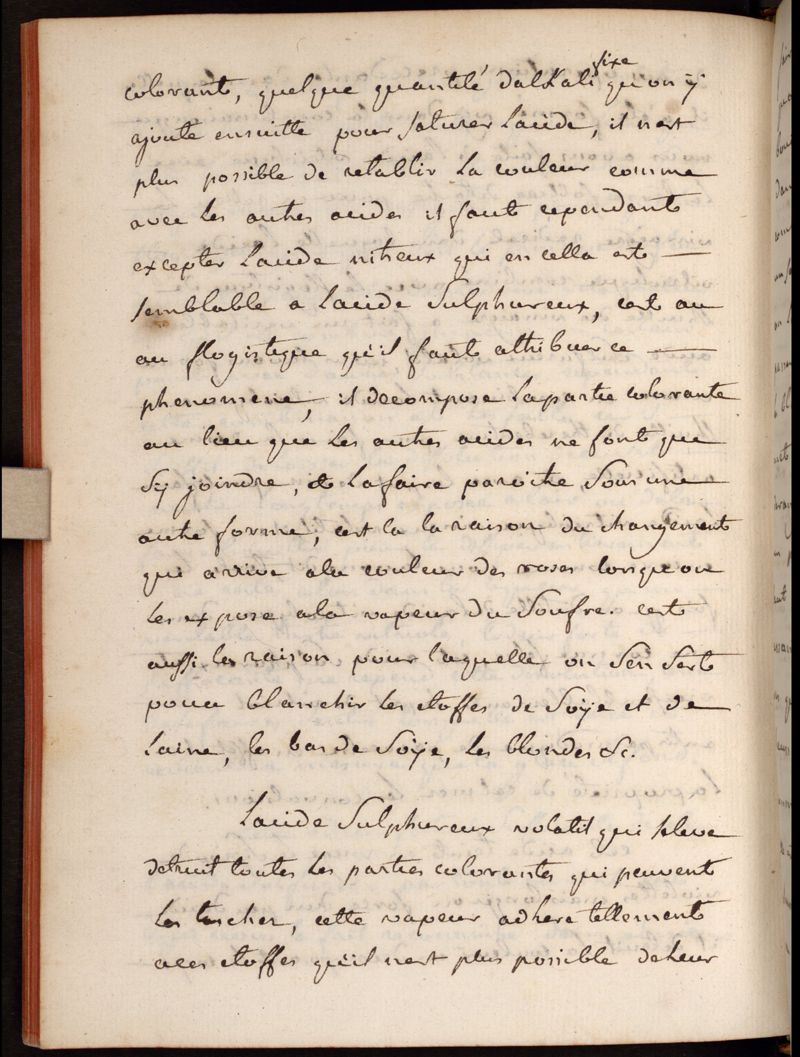 colorante, quelque quantité dalKali fixe qu'on y
ajoute ensuitte pour saturer Lacide, il n'est
plus possible de retablir La couleur comme
avec Les autres acides il faut cependant
excepter Lacide nitreux qui en cella est —
semblable a Lacide Sulphureux, cest au
au flogistique qu'il faut attribuer ce —
phenomene, il decompose La partie colorante
au lieu que Les autres acides ne font que
Sÿ joindre, et La faire paroitre Sous une
autre forme, cest la la raison du changement
qui arrive a la couleur des roses lorsque on
Les expose a la vapeur du Soufre. cest
aussi la raison pour laquelle on Sen Sert
pour blanchir Les etoffes de Soÿe et de
Laine, les bas de Soÿe, Les blondes &c.
Lacide Sulphureux volatil qui Seleve
detruit toutes Les parties colorantes qui peuvent
Les tacher, cette vapeur adhere tellement
a ces etoffes qu'il n'est plus possible de Leur